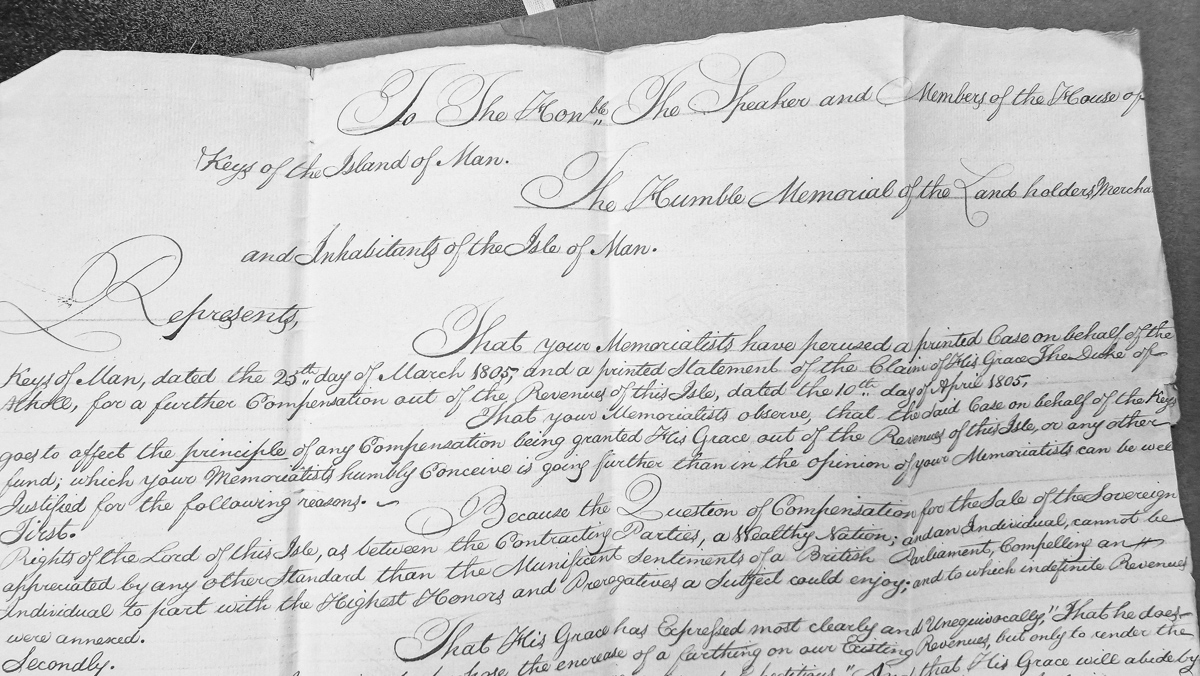 To The Honble The Speaker and Members of the House of
Keys of the Island of Man.
The Humble Memorial of the Land holders, Mercha
and Inhabitants of the Isle of Man.
Represents,
That your Memorialists have perused a printed Case on behalf of the
Keys of Man, dated the 25th day of March 1805, and a printed Statement of the Claim of His Grace The Duke of
Atholl, for a further Compensation out of the Revenues of this Isle, dated the 10th day of April 1805,
That your Memorialists observe, that the said Case on behalf of the Keys
goes to affect the principle of any Compensation being granted His Grace out of the Revenues of this Isle, or any other
fund; which your Memorialists humbly Conceive is going further than in the opinion of your Memorialists can be well
Justified for the following reasons. ~
First. Because the Question of Compensation for the Sale of the Sovereign
Rights of the Lord of this Isle, as between the Contracting Parties, a Wealthy Nation; and an Individual, cannot be
appreciated by any other Standard than the Munificent sentiments of a British Parliament, Compelling an
Individual to part with the Highest Honors and Prerogatives a Subject could enjoy; and to which indefinite Revenues
were annexed.
Secondly. That His Grace has Expressed most clearly and Unequivocally, "That he does
the encrease of a farthing on our Existing Revenues, but only to render the
And that His Grace will abide by